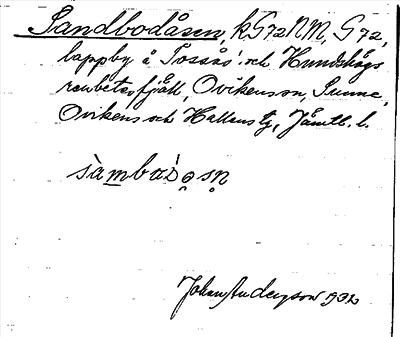 Sandbodåsen, k G72NM, G72,
lappby å Tossås och Hundshögs
renbetesfjäll, Ovikens sn, Sunne,
Ovikens och Hallens tg, Jämtl. l.
Johan Anderzson 1932